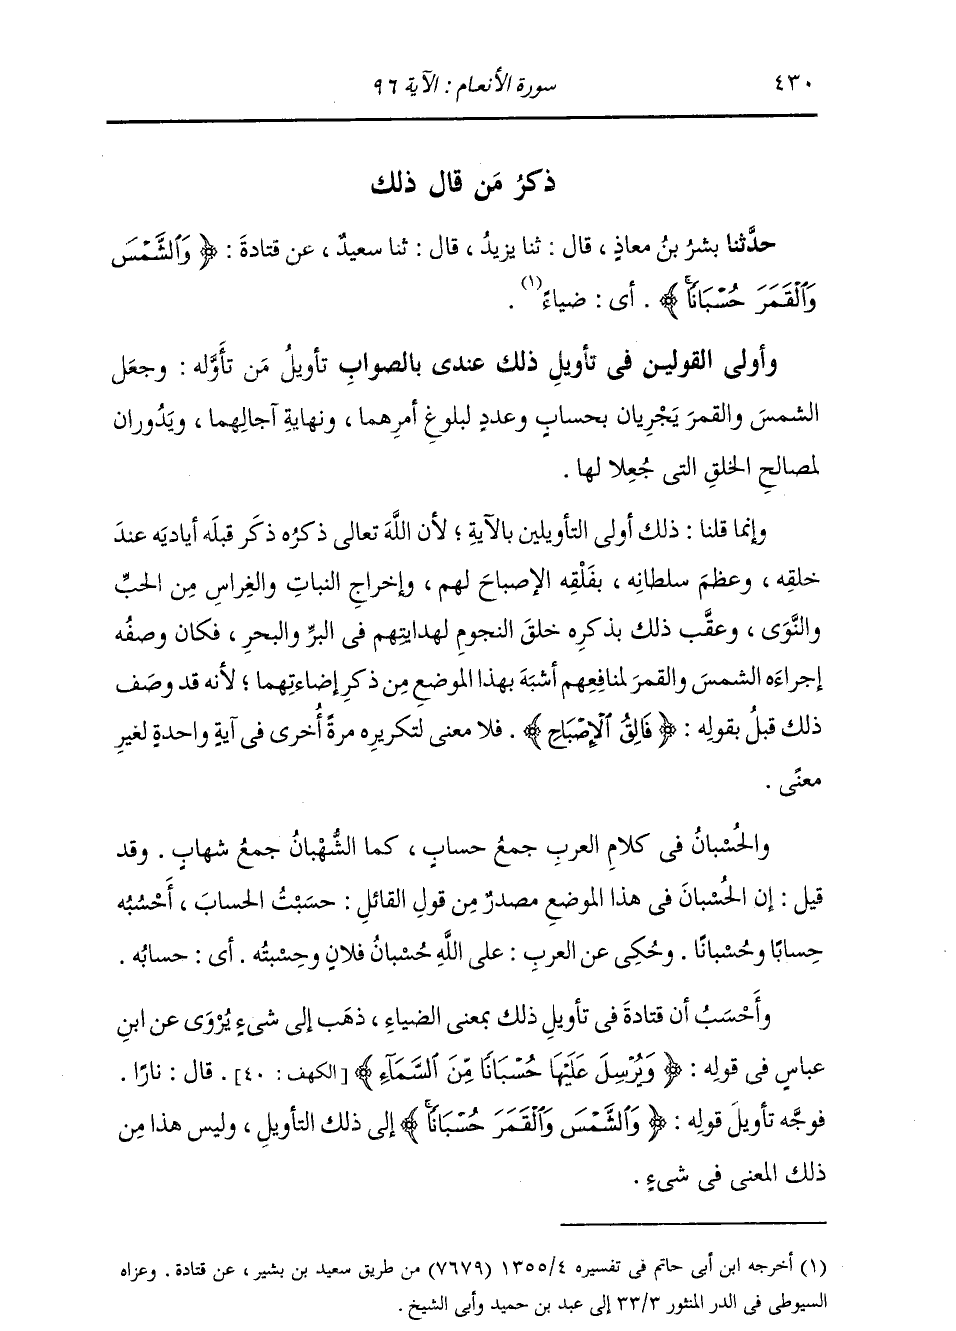 ٤٣٠ سورة الأنعام : الآية ٩٦
ذكرُ مَن قال ذلك
حدَّثنا بشرُ بنُ معاذٍ ، قال : ثنا يزيدُ ، قال : ثنا سعيدٌ ، عن قتادةَ : ﴿ وَٱلشَّمْسَ
وَٱلْقَمَرَ حُسْبَانًاۚ ﴾ . أى : ضياءً(١) .
وأولى القولين فى تأويلِ ذلك عندى بالصوابِ تأويلُ مَن تأَوَّله : وجعَل
الشمسَ والقمرَ يَجْرِيان بحسابٍ وعددٍ لبلوغِ أمرِهما ، ونهايةِ آجالِهما ، ويَدُوران
لمصالحِ الخلقِ التى جُعِلا لها .
وإنما قلنا : ذلك أولى التأويلين بالآيةِ ؛ لأن اللَّهَ تعالى ذكرُه ذكَر قبلَه أياديَه عندَ
خلقِه ، وعظمَ سلطانِه ، بفَلْقِه الإصباحَ لهم ، وإخراجِ النباتِ والغِراسِ مِن الحبِّ
والنَّوَى ، وعقَّب ذلك بذكرِه خلقَ النجومِ لهدايتِهم فى البرِّ والبحرِ ، فكان وصفُه
إجراءَه الشمسَ والقمرَ لمنافعِهم أشبَهَ بهذا الموضعِ مِن ذكرِ إضاءتِهما ؛ لأنه قد وصَف
ذلك قبلُ بقولِه : ﴿ فَالِقُ ٱلْإِصْبَاحِ ﴾ . فلا معنى لتكريرِه مرةً أُخرى فى آيةٍ واحدةٍ لغيرِ
معنًى .
والحُسْبانُ فى كلامِ العربِ جمعُ حسابٍ ، كما الشُّهْبانُ جمعُ شهابٍ . وقد
قيل : إن الحُسْبانَ فى هذا الموضعِ مصدرٌ مِن قولِ القائلِ : حسَبْتُ الحسابَ ، أَحْسُبُه
حِسابًا وحُسْبانًا . وحُكِى عن العربِ : على اللَّهِ حُسْبانُ فلانٍ وحِسْبتُه . أى : حسابُه .
وأَحْسَبُ أن قتادةَ فى تأويلِ ذلك بمعنى الضياءِ ، ذهَب إلى شىءٍ يُرْوَى عن ابنِ
عباسٍ فى قولِه : ﴿ وَيُرْسِلَ عَلَيْهَا حُسْبَانًا مِّنَ ٱلسَّمَآءِ ﴾ [الكهف : ٤٠] . قال : نارًا .
فوجَّه تأويلَ قولِه : ﴿ وَٱلشَّمْسَ وَٱلْقَمَرَ حُسْبَانًاۚ ﴾ إلى ذلك التأويلِ ، وليس هذا مِن
ذلك المعنى فى شىءٍ .
(١) أخرجه ابن أبى حاتم فى تفسيره ١٣٥٥/٤ (٧٦٧٩) من طريق سعيد بن بشير ، عن قتادة . وعزاه
السيوطى فى الدر المنثور ٣٣/٣ إلى عبد بن حميد وأبى الشيخ .